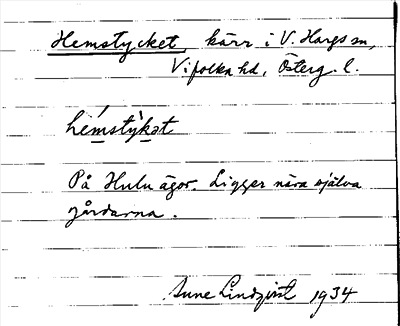 Hemstycket, kärr i V. Hargs sn,
Vifolka hd, Österg. l.
hémstỳkət
På Hulu ägor. Ligger nära själva
gårdarna.
Sune Lindqvist 1934